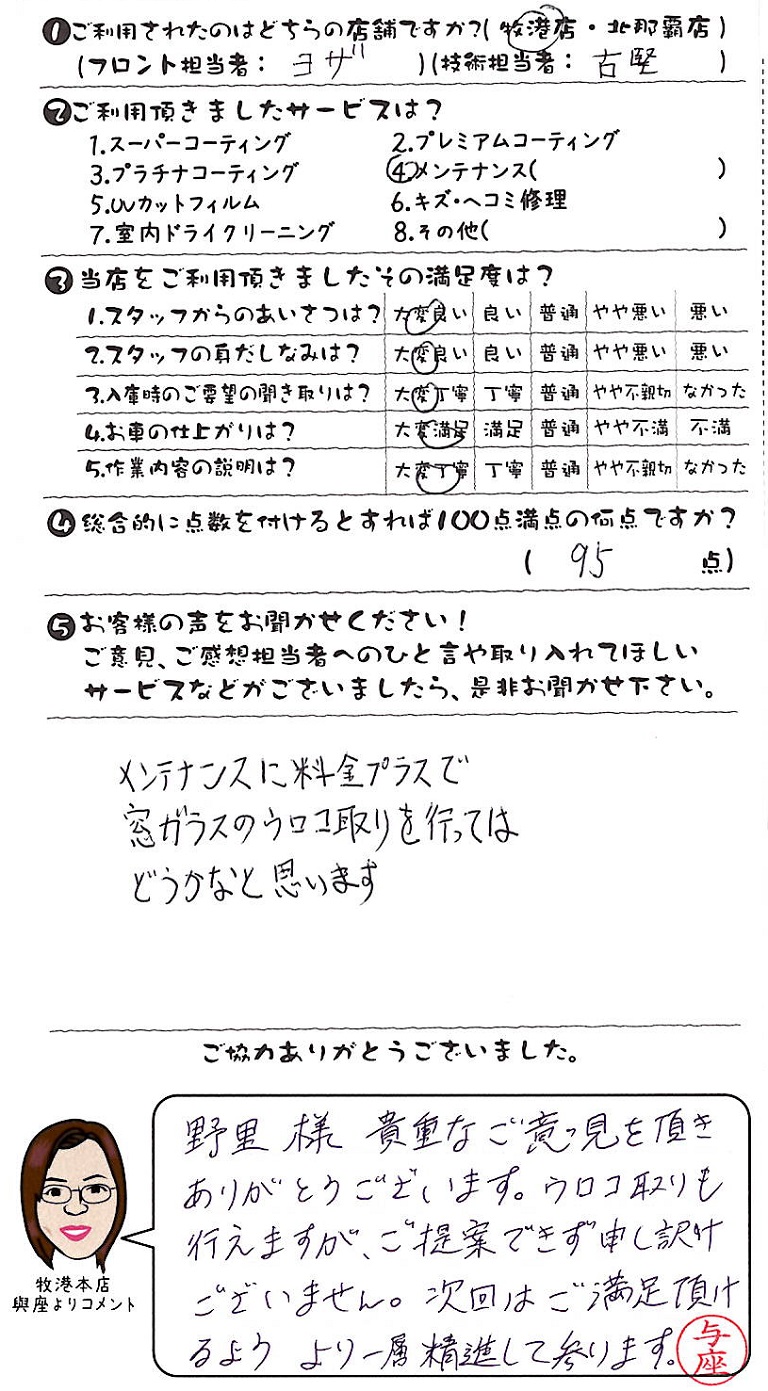 ❶ご利用されたのはどちらの店舗ですか?(牧港店・北那覇店)
(フロント担当者: ヨザ )(技術担当者: 古堅 )
❷ご利用頂きましたサービスは?
1.スーパーコーティング 2.プレミアムコーティング
3.プラチナコーティング 4.メンテナンス( )
5.UVカットフィルム 6.キズ・ヘコミ修理
7.室内ドライクリーニング 8.その他( )
❸当店をご利用頂きましたその満足度は?
1.スタッフからのあいさつは? 大変良い 良い 普通 やや悪い 悪い
2.スタッフの身だしなみは? 大変良い 良い 普通 やや悪い 悪い
3.入庫時のご要望の聞き取りは? 大変丁寧 丁寧 普通 やや不親切 なかった
4.お車の仕上がりは? 大変満足 満足 普通 やや不満 不満
5.作業内容の説明は? 大変丁寧 丁寧 普通 やや不親切 なかった
❹総合的に点数を付けるとすれば100点満点の何点ですか?
( 95 点)
❺お客様の声をお聞かせください!
ご意見、ご感想担当者へのひと言や取り入れてほしい
サービスなどがございましたら、是非お聞かせ下さい。
メンテナンスに料金プラスで
窓ガラスのウロコ取りを行っては
どうかなと思います
ご協力ありがとうございました。
野里 様 貴重なご意見を頂き
ありがとうございます。ウロコ取りも
行えますが、ご提案できず申し訳け
ございません。次回はご満足頂け
るよう より一層精進して参ります。
与座
牧港本店
與座よりコメント